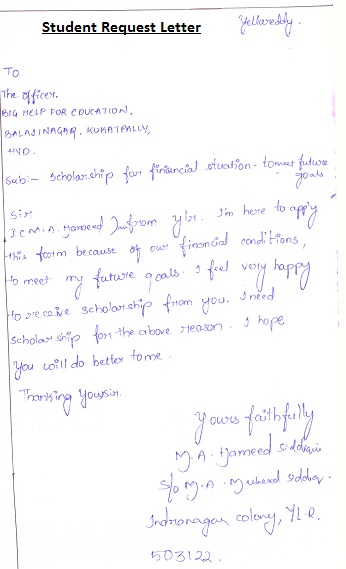 Student Request Letter
Yellareddy.
To
The officer,
BIG HELP FOR EDUCATION,
BALAJINAGAR, KUKATPALLY,
HYD.
Sub:- Scholarship for finiancial stuation - to meet future goals
Sir
I.C M.A. Hameed from ylr. I'm here to apply
this form because of our financial conditions,
to meet my future goals. I feel very happy
to receive scholarship from you. I need
Scholar ship for the above reason. I hope
you will do better to me.
Thanking You sir.
Yours faithfully
M.A. Hameed Siddiqui
S/o M.A.
Indranagar colony, YL.R.
503122.